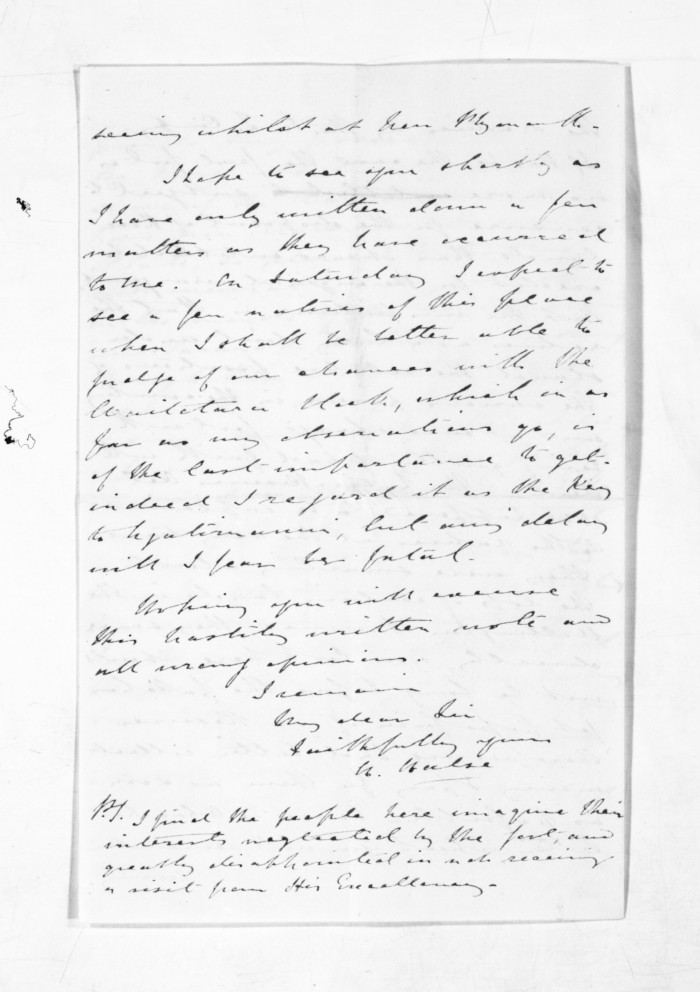 seeing whilst at New Plymouth.
I hope to see you shortly as
I have only written down a few
matters as they have occurred
to me. On Saturday I expect to
see a few natives of this place
when I shall be better able to
judge of our chances with the
Waitara Block, which in as
far as my observations go, is
of the last importance to get.
indeed I regard it as the Key
to but any delay
will I fear be fatal.
Hoping you will excuse
this hastily written note and
all wrong opinions.
I remain
My dear Sir
Faithfully yours
Halse
P.S. I find the people here imagine their
interests neglected by the Govt, and
greatly disappointed in not receiving
a visit from His Excellency.